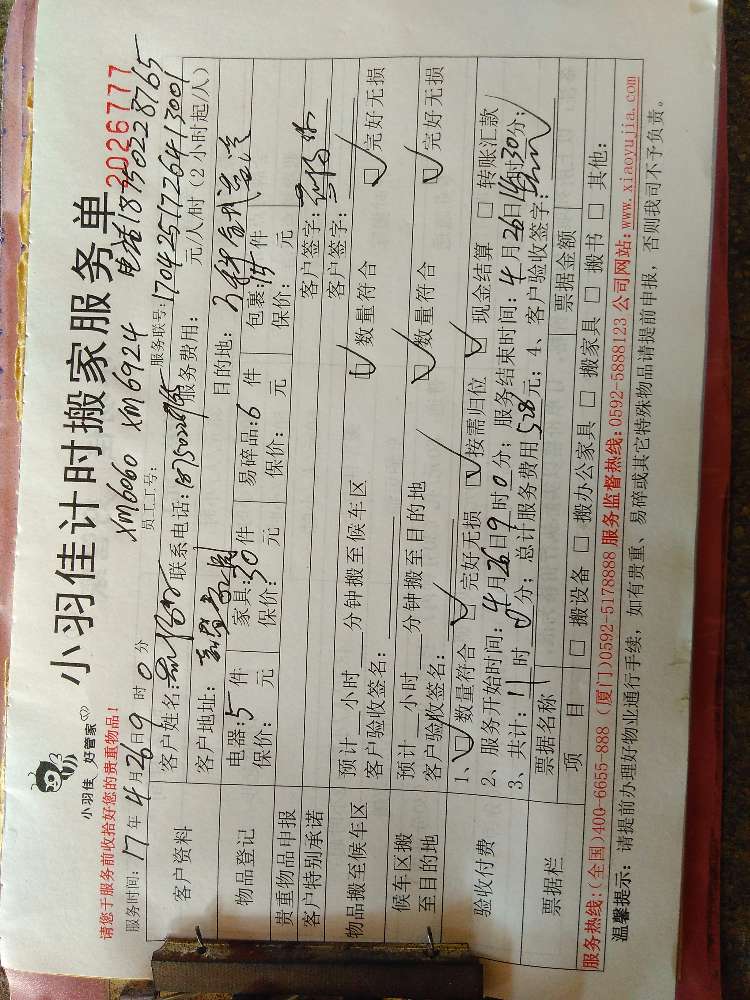 小羽佳 好管家
小羽佳计时搬家服务单
2026777
请您于服务前收拾好您的贵重物品!
XM6060 XM6924 电话18750228765
服务时间: 17年4月26日9时0分 员工工号: 服务联号: 1704251726413001
客户资料 客户姓名: 联系电话: 18750228765 服务费用: 元/人/时(2小时起/人)
客户地址: 目的地:
物品登记 电器: 5件 家具: 30件 易碎品: 6件 包裹: 15件
保价: 元 保价: 元 保价: 元 保价: 元
贵重物品申报 客户签字:
客户特别承诺 客户签字:
物品搬至候车区 预计 小时 分钟搬至候车区 数量符合 完好无损
客户验收签名:
候车区搬至目的地 预计 小时 分钟搬至目的地 数量符合 完好无损
客户验收签名:
验收付费 1、数量符合 完好无损 按需归位 现金结算 转账汇款
2、服务开始时间: 4月26日9时0分; 服务结束时间: 4月26日14时30分;
3、共计: 11时 分; 总计服务费用528元; 4、客户验收签字:
票据栏 票据名称 票据金额
项目 搬设备 搬办公家具 搬家具 搬书 其他:
服务热线:(全国)400-6655-888 (厦门)0592-5178888 服务监督热线:0592-5888123 公司网站:www.xiaoyujia.com
温馨提示: 请提前办理好物业通行手续, 如有贵重、易碎或其它特殊物品请提前申报, 否则我司不予负责。